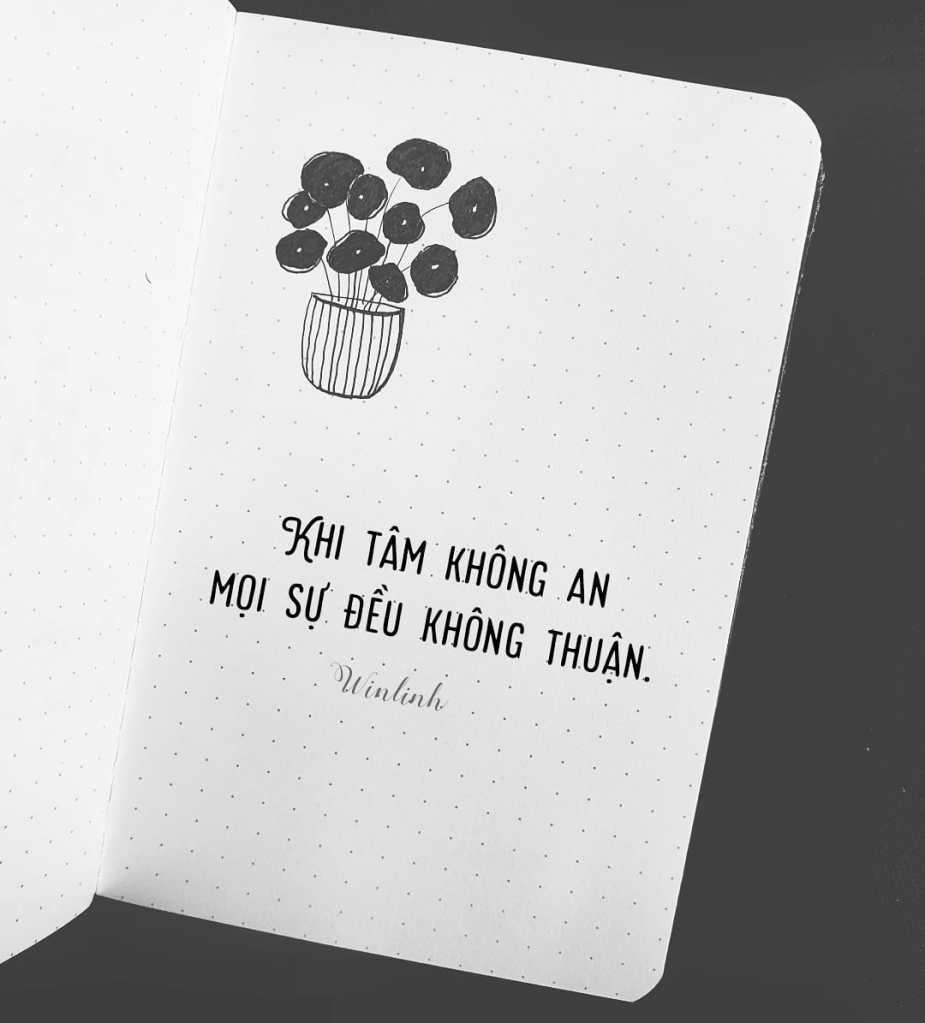 Khi tâm không an
mọi sự đều không thuận.
Winlinh